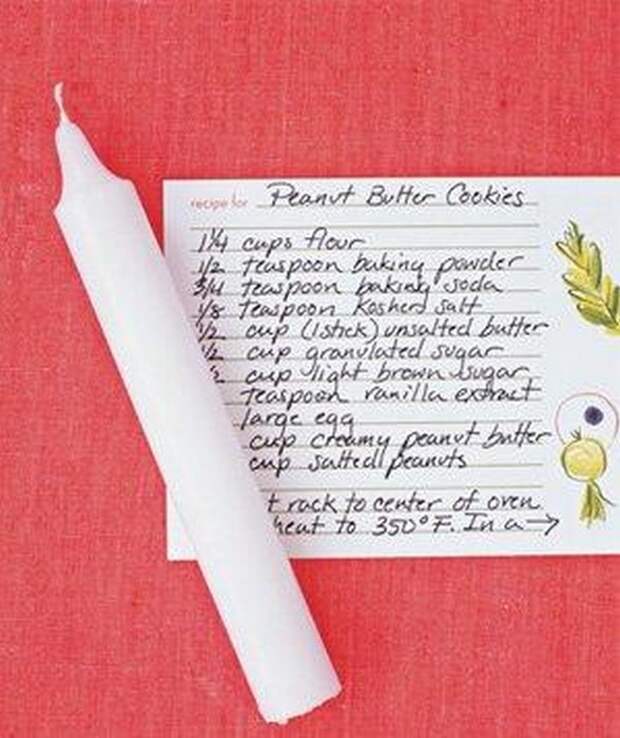 recipe for Peanut Butter Cookies
1¼ cups flour
1/2 teaspoon baking powder
3/4 teaspoon baking soda
1/8 teaspoon kosher salt
1/2 cup (1 stick) unsalted butter
1/2 cup granulated sugar
2 cup light brown sugar
teaspoon vanilla extract
large egg
cup creamy peanut butter
cup salted peanuts
t rack to center of oven
heat to 350° F. In a →